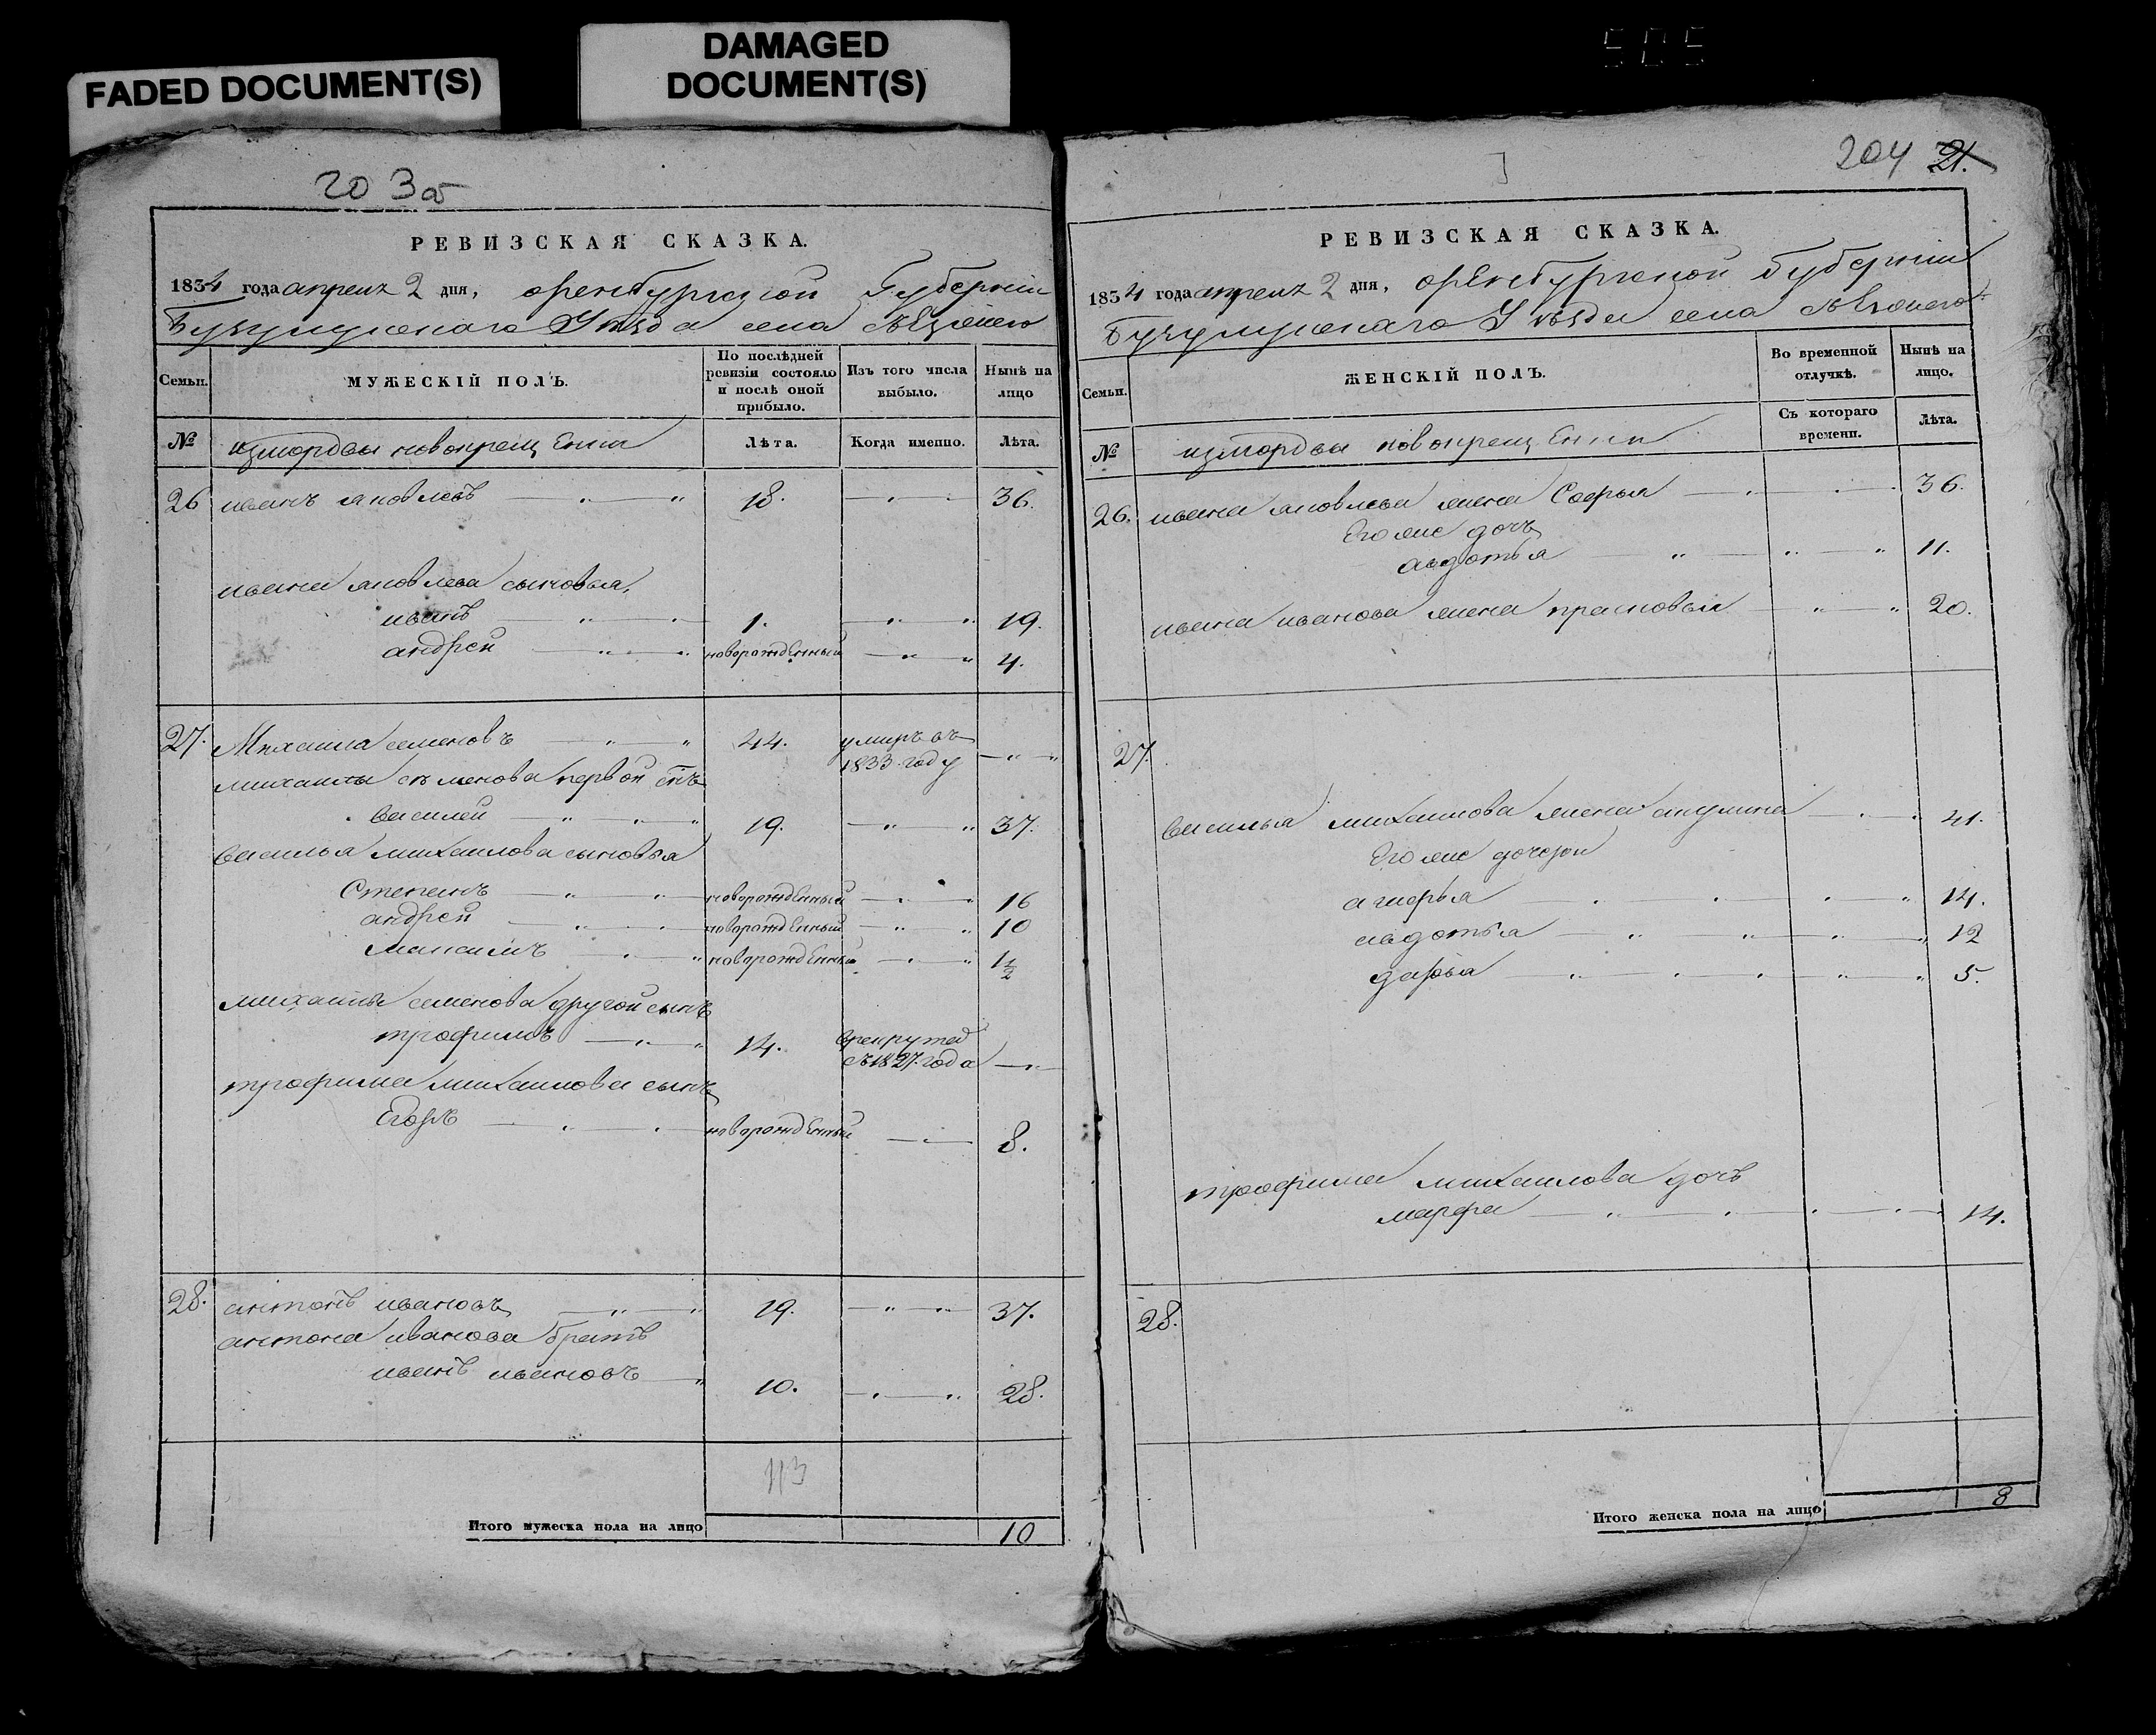 FADED DOCUMENT(S)
DAMAGED
DOCUMENT(S)
505
203об
РЕВИЗСКАЯ СКАЗКА.
1834 года апреля 2 дня, оренбургской Губернии
Бузулукского Уѣзда села
Семьи.
МУЖЕСКІЙ ПОЛЪ.
По послѣдней ревизіи состояло и послѣ оной прибыло.
Изъ того числа выбыло.
Нынѣ на лицо
№
измордвы новокрещЕнии
Лѣта.
Когда именно.
Лѣта.
26 иванъ яковлевъ 18. 36.
ивана яковлева сыновья,
иванъ 1. 19.
андрей новорождЕнный 4.
27. Михаила семеновъ 44. умиръ въ 1833 году
михаилы семенова первой снъ
василей 19. 37.
василья михаилова сыновья
Степанъ новорождЕнный 16
андрей новорождЕнный 10
максимъ новорождЕнный 1 1/2
михаилы семенова другой сынъ
трофимъ 14. врекруте съ 1827 года
трофима михаилова сынъ
Егоръ новорождЕнный 8.
28. антонъ ивановъ 19. 37.
антона иванова братъ
иванъ ивановъ 10. 28.
113
Итого мужеска пола на лицо 10
204 21.
РЕВИЗСКАЯ СКАЗКА.
1834 года апреля 2 дня, орЕнбургской губернии
Бузулукского Уѣзда села
Семьи.
ЖЕНСКІЙ ПОЛЪ.
Во временной отлучкѣ.
Нынѣ на лицо.
№
измордвы новокрещЕнии
Съ котораго времени.
Лѣта.
26. ивана яковлева жена Софья 36.
Его же дочь
авдотья 11.
ивана иванова жена прасковья 20.
27.
василья михаилова жена акулина 41.
Его же дочери
14.
авдотья 12
дарья 5.
трофима михаилова дочь
марфа 14.
28.
Итого женска пола на лицо 8